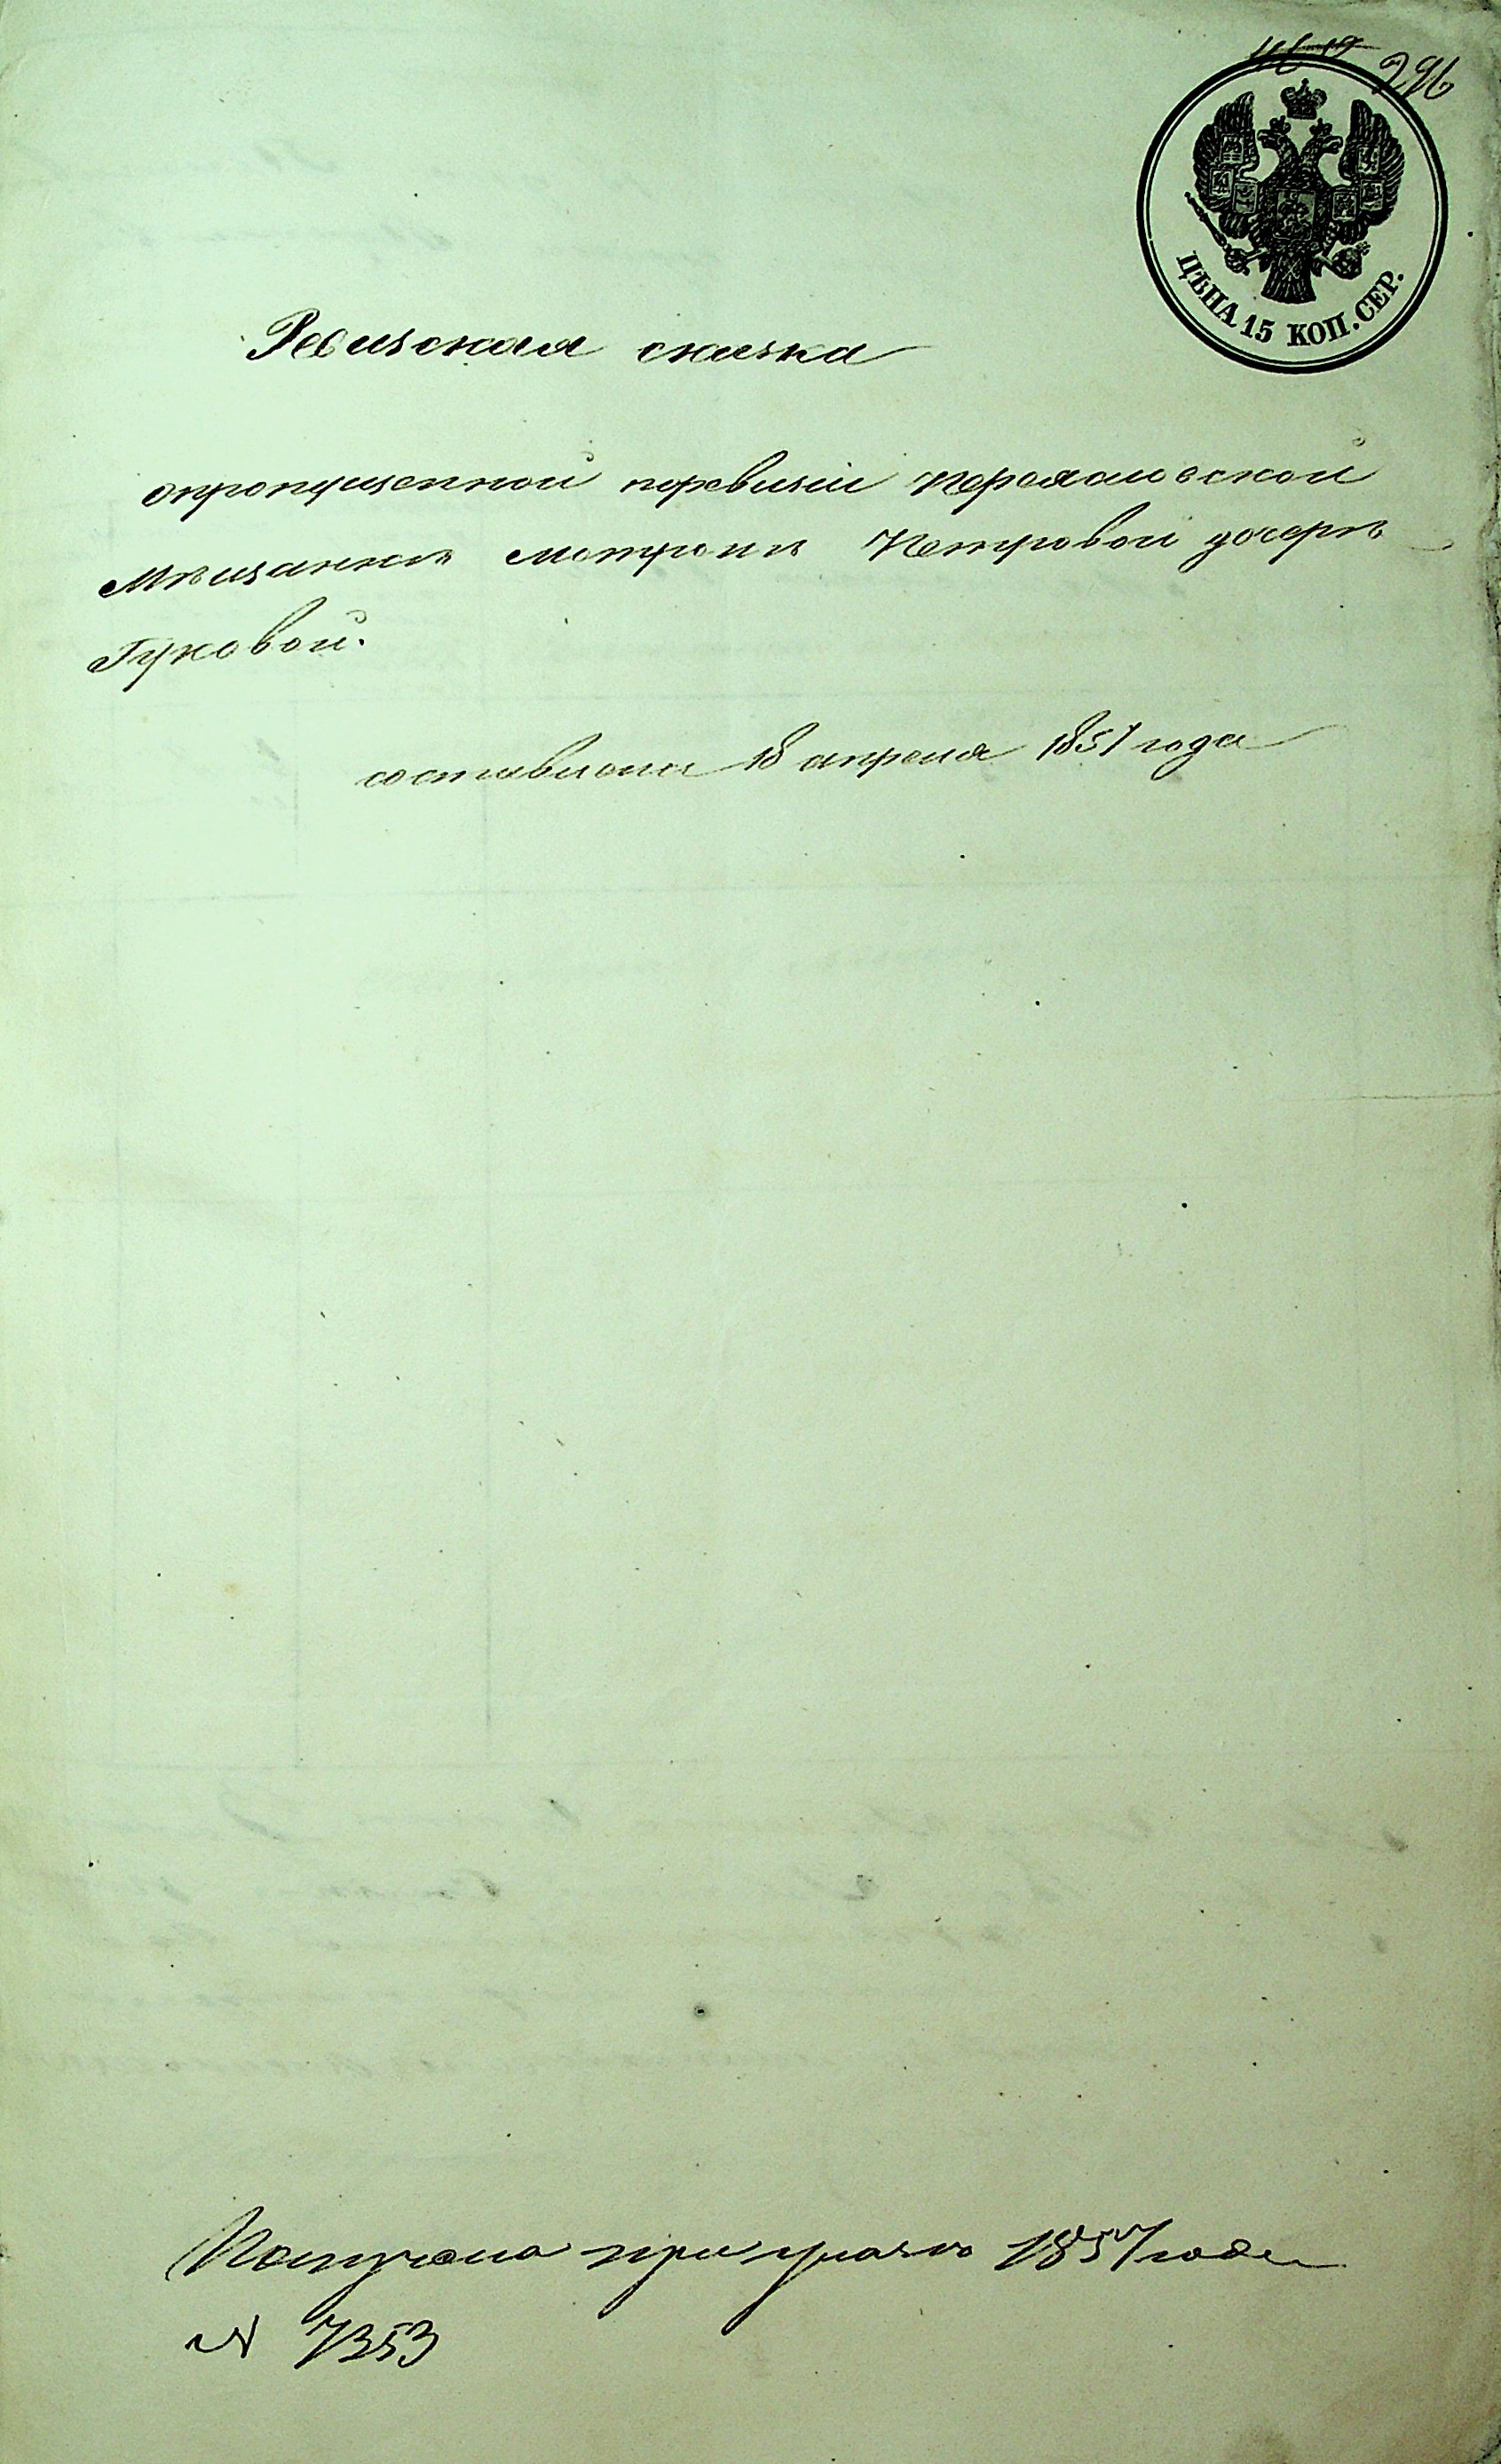 296
ЦѢНА 15 КОП. СЕР.
Ревизская сказка
опропущенной поревизіи Переяславской
Мѣщанкѣ Мотронѣ Петровой дочерѣ
Гуковой.
составлена 18 апреля 1851 года
Получена при указѣ 1857 года
№ 7353